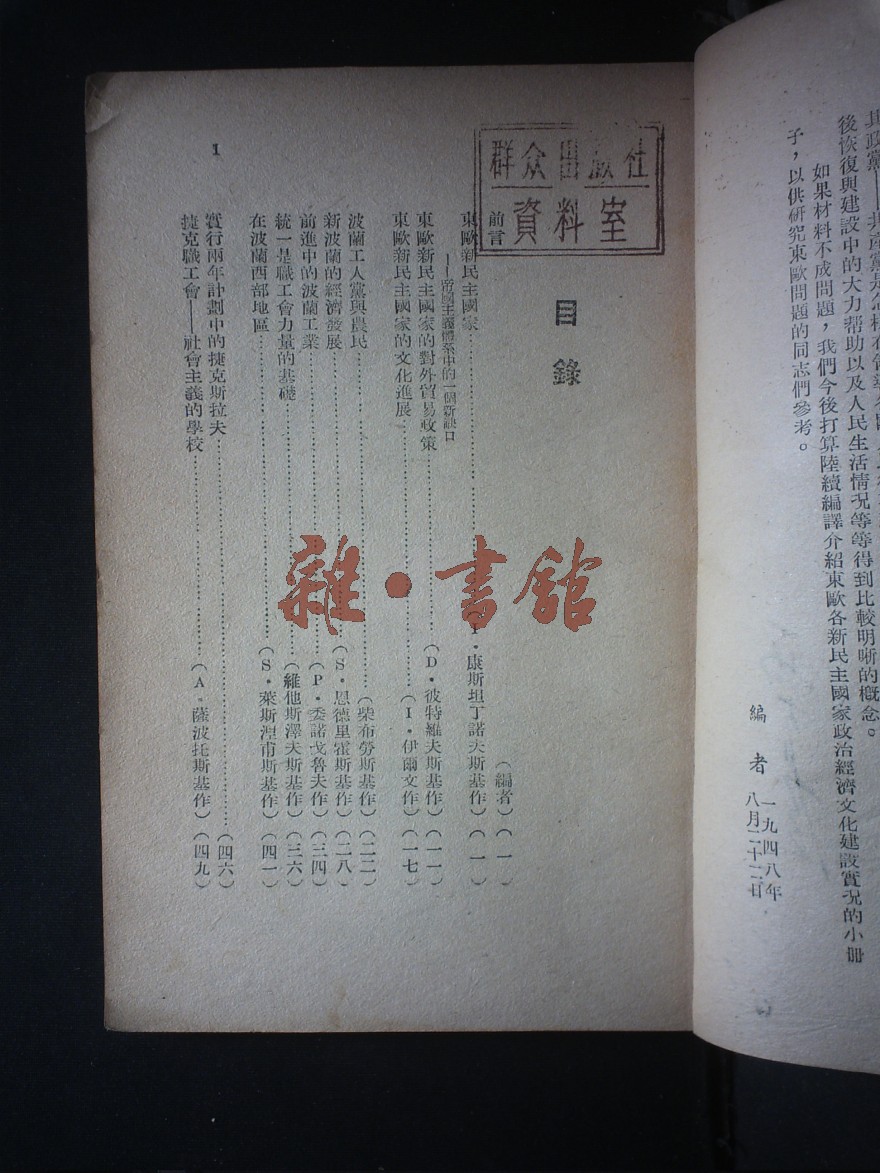 後恢復與建設中的大力帮助以及人民生活情况等等得到比較明晰的概念。
如果材料不成問題，我們今後打算陸續編譯介紹東歐各新民主國家政治經濟文化建設實况的小册
子，以供研究東歐問題的同志們參考。
編者
一九四八年
八月二十二日
群众出版社
資料室
目錄
前言（編者）（一）
東歐新民主國家
——帝國主義體系中的一個新缺口
康斯坦丁諾夫斯基作）（一）
東歐新民主國家的對外貿易政策（D·彼特羅夫斯基作）（一一）
東歐新民主國家的文化進展（I·伊爾文作）（一七）
波蘭工人黨與農民（柴布勞斯基作）（二二）
新波蘭的經濟發展（S·恩德里霍斯基作）（二八）
前進中的波蘭工業（P·委諾戈魯夫作）（三四）
統一是職工會力量的基礎（維他斯澤夫斯基作）（三六）
在波蘭西部地區（S·萊斯湼甫斯基作）（四一）
實行兩年計劃中的捷克斯拉夫（四六）
捷克職工會——社會主義的學校（A·薩波托斯基作）（四九）
1
雜·書館